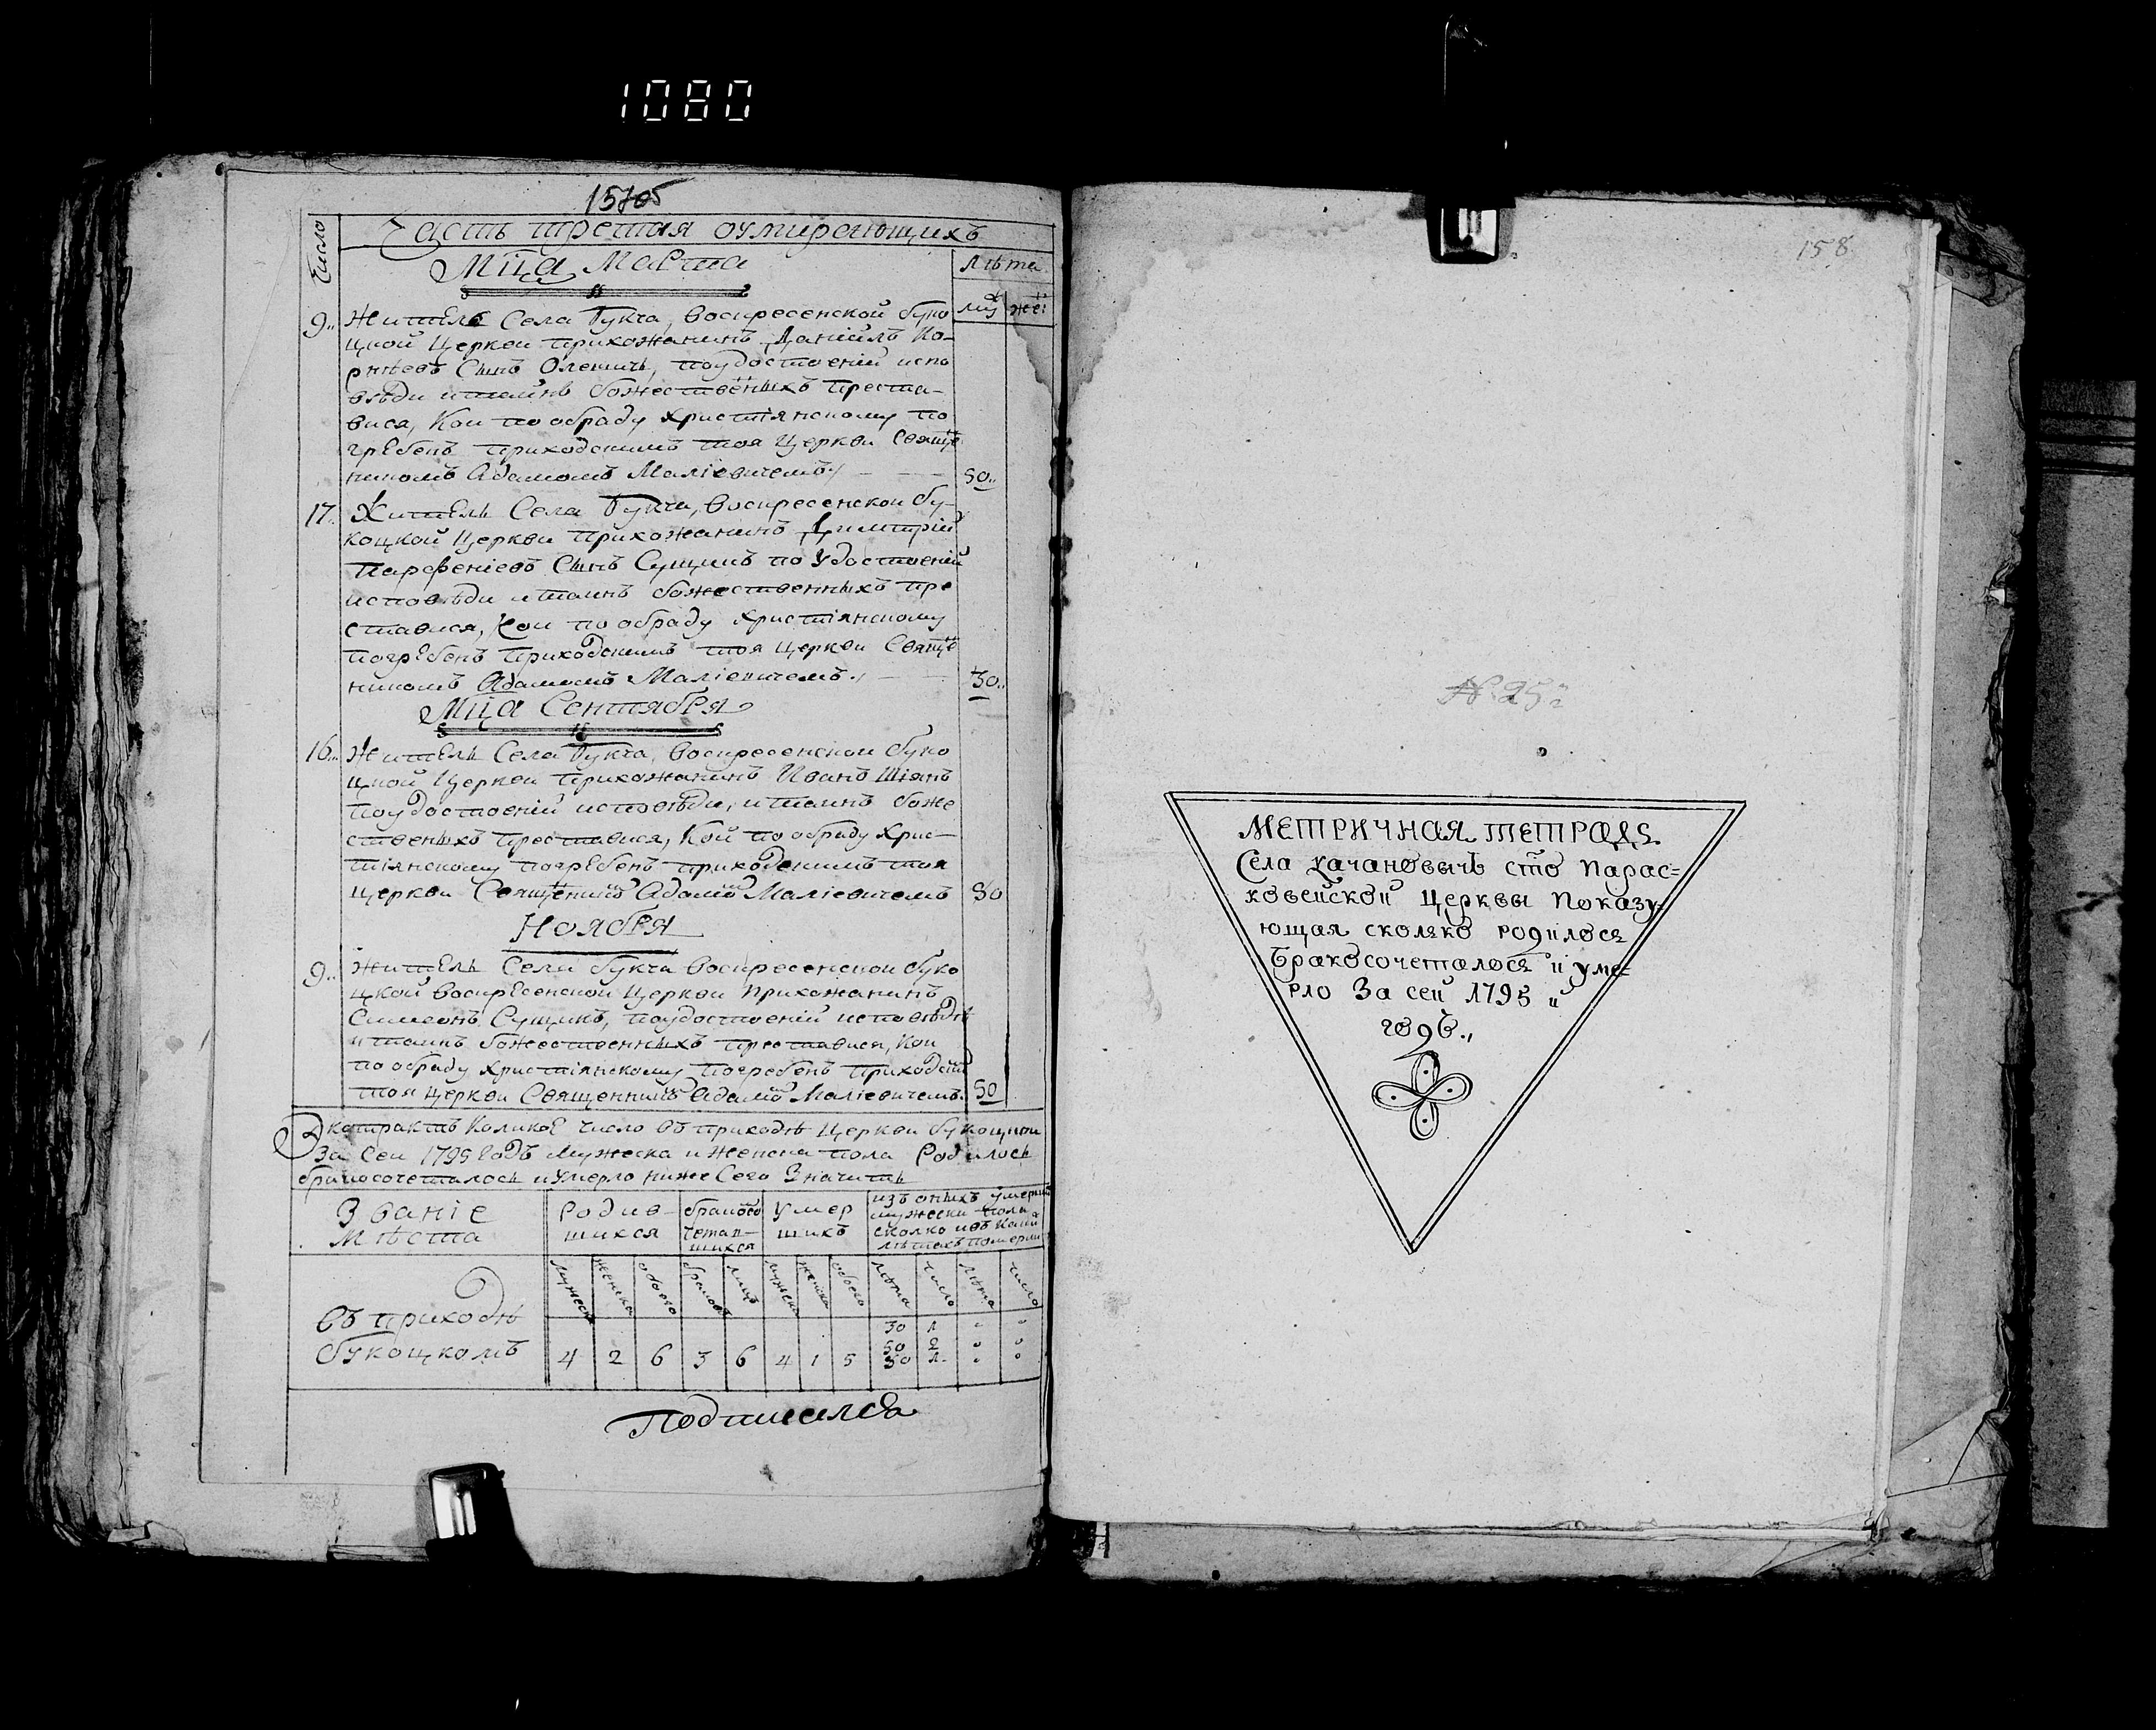 1080
157об
Число
Часть третая оумирающихъ
Мца Марта
лѣта
муж жен
9.. Житель Села Букча, Воскресенской буко
цкой Церкви прихожанинъ Данiилъ Ко-
рнѣевъ Сынъ Олешичь, поудостоенiй испо
вѣди итаинъ божественыхъ преста-
вися, Кои по обраду христiянскому по
гребенъ приходскимъ тоя Церкви Священ
никомъ Адамомъ Малiевичемъ./ 50..
17.. Житель Села Букча, Воскресенской бу-
коцкой Церкви прихожанинъ Димитрiй
Парфенiевъ Сынъ Сущикъ по удостоенiй
исповѣди и таинъ божественныхъ пре
ставися, Кои по обраду христiянскому
погребенъ приходскимъ тоя церкви Свяще
никомъ Адамомъ Малiевичемъ./ 30..
Мца Сентября
16.. Житель Села Букча, Воскресенскои буко
цкой Церкви прихожанинъ Иванъ Шіянъ
поудостоенiй исповѣди, и таинъ боже
ственыхъ преставися, Кой по обраду хрис-
тiянскому погребенъ приходскимъ тоя
церкви Священико Адамо Малiевичемъ 50
Ноября
9.. Житель Села букча Воскресенскои буко
цкой Воскресенской Церкви прихожанинъ
Симеонъ Сущикъ, поудостоенiй исповѣди
и таинъ божественныхъ преставися, Кои
по обраду христiянскому погребенъ приходски
тоя церкви Священнико Адамо Малiевичемъ. 50
Экстрактъ Коликое число въ приходѣ Церкви букоцкой
За Сеи 1795 Годъ Мужеска и женска пола Родилось
бракосочеталось и умерло ниже Сего Значить
Званiе
Мѣста
Родив-
шихся
бракосо
четав-
шихся
Умер
шихъ
изъ оныхъ умерши
мужеска пола
сколко ивъ каки
лѣтахъ померли
мужеска женска обоего браковъ лицъ мужеска женска обоего лѣта число лѣта число
въ приходѣ
букоцкомъ
4 2 6 3 6 4 1 5
30 1 " "
50 2 " "
50 1. " "
Подписался
158
№ 25.
МЕТРИЧНАЯ ТЕТРАДЬ
Села Качановычъ сто Парас=
ковейской Церквы Показу=
ющая сколко родилося
Бракосочеталося и уме=
рло За сей 1795 й
годъ.,